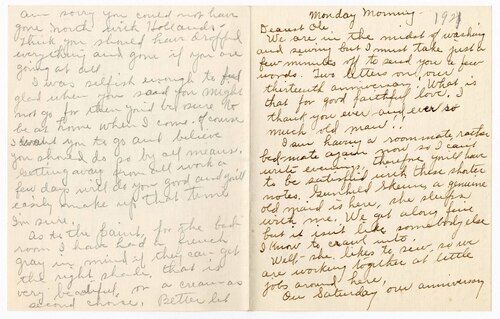 am sorry you could not have
gone North with Hollands.
I think you should have dropped
everything and gone if you are
going at all.
I was selfish enough to feel
glad when you said you might
not go for then you'd be sure to
be at home when I come. Of course
I want you to go and believe
you should do so by all means.
Getting away from all work a
few days will do you good and you'll
easily make up that time
I'm sure.
As to the paint, for the bed-
room I have had a french
gray in mind if they can get
the right shade, that is
very beautiful, or a cream as
second choice. Better let
Monday Morning 1921
Dearest Ole,
We are in the midst of washing
and sewing but I must take just a
few minutes off to send you a few
words. Two letters on our
thirteenth anniversary, What is
that for good faithful love. I
thank you ever and ever so
much old man.
I am having a roommate rather
bed-mate again now so I can't
write evenings, therefore, you'll have
to be satisfied with these shorter
notes. a genuine
old maid is here, she sleeps
with me. We get along fine
but it isn't like somebody else
I know to crawl into.
Well- she likes to sew, so we
are working together at little
jobs around here,
Our Saturday over anniversary